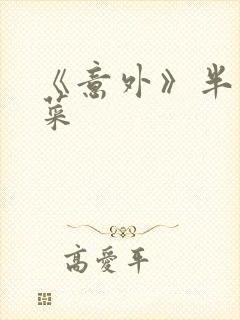 《意外》半
菜
高愛平